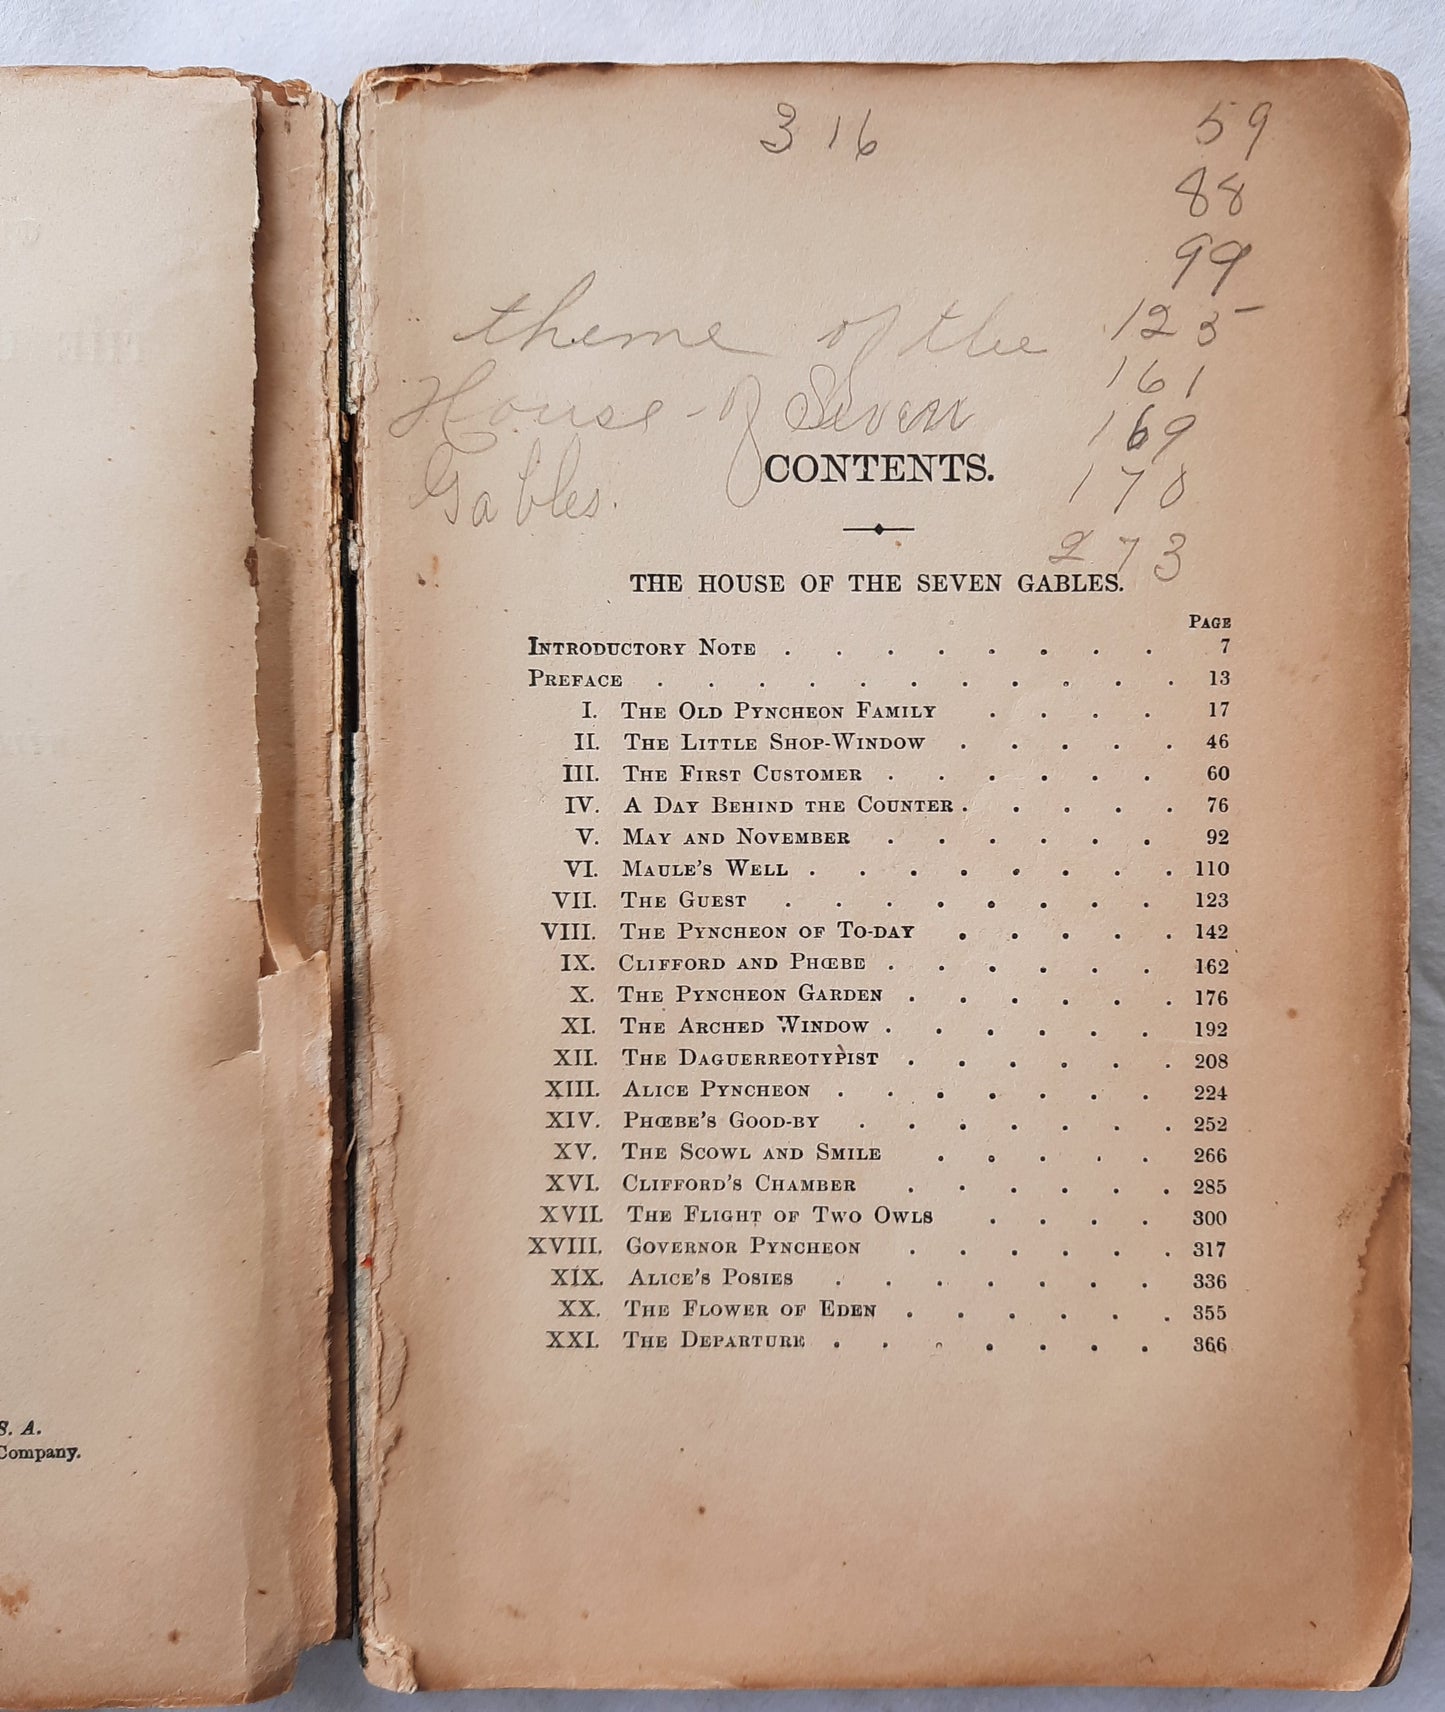 3 16
59
88
99
theme of the
125
161
House of Seven
169
CONTENTS.
Gables.
178
273
THE HOUSE OF THE SEVEN GABLES.
PAGE
INTRODUCTORY NOTE . . . . . . . . 7
PREFACE . . . . . . . . . . . 13
I. THE OLD PYNCHEON FAMILY . . . . 17
II. THE LITTLE SHOP-WINDOW . . . . . 46
III. THE FIRST CUSTOMER . . . . . . 60
IV. A DAY BEHIND THE COUNTER . . . . . 76
V. MAY AND NOVEMBER . . . . . . 92
VI. MAULE'S WELL . . . . . . . . 110
VII. THE GUEST . . . . . . . . 123
VIII. THE PYNCHEON OF TO-DAY . . . . . 142
IX. CLIFFORD AND PHŒBE . . . . . . 162
X. THE PYNCHEON GARDEN . . . . . . 176
XI. THE ARCHED WINDOW . . . . . . 192
XII. THE DAGUERREOTYPIST . . . . . . 208
XIII. ALICE PYNCHEON . . . . . . . 224
XIV. PHŒBE'S GOOD-BY . . . . . . . 252
XV. THE SCOWL AND SMILE . . . . . 266
XVI. CLIFFORD'S CHAMBER . . . . . . 285
XVII. THE FLIGHT OF TWO OWLS . . . . 300
XVIII. GOVERNOR PYNCHEON . . . . . . 317
XIX. ALICE'S POSIES . . . . . . . 336
XX. THE FLOWER OF EDEN . . . . . . 355
XXI. THE DEPARTURE . . . . . . . 366
S. A.
Company.